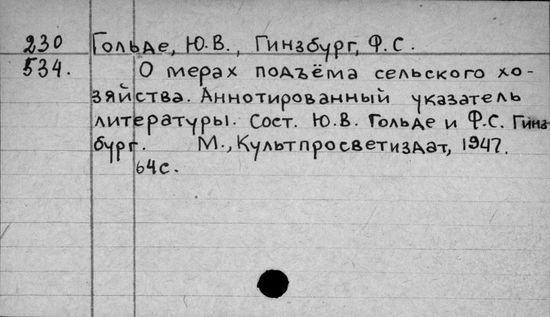 230 Гольде, Ю.В., Гинзбург, Ф.С.
534. О мерах подъёма сельского хо-
зяйства. Аннотированный указатель
литературы. Сост. Ю.В. Гольде и Ф.С. Гинз-
бург. М., Культпросветиздат, 1947.
64с.